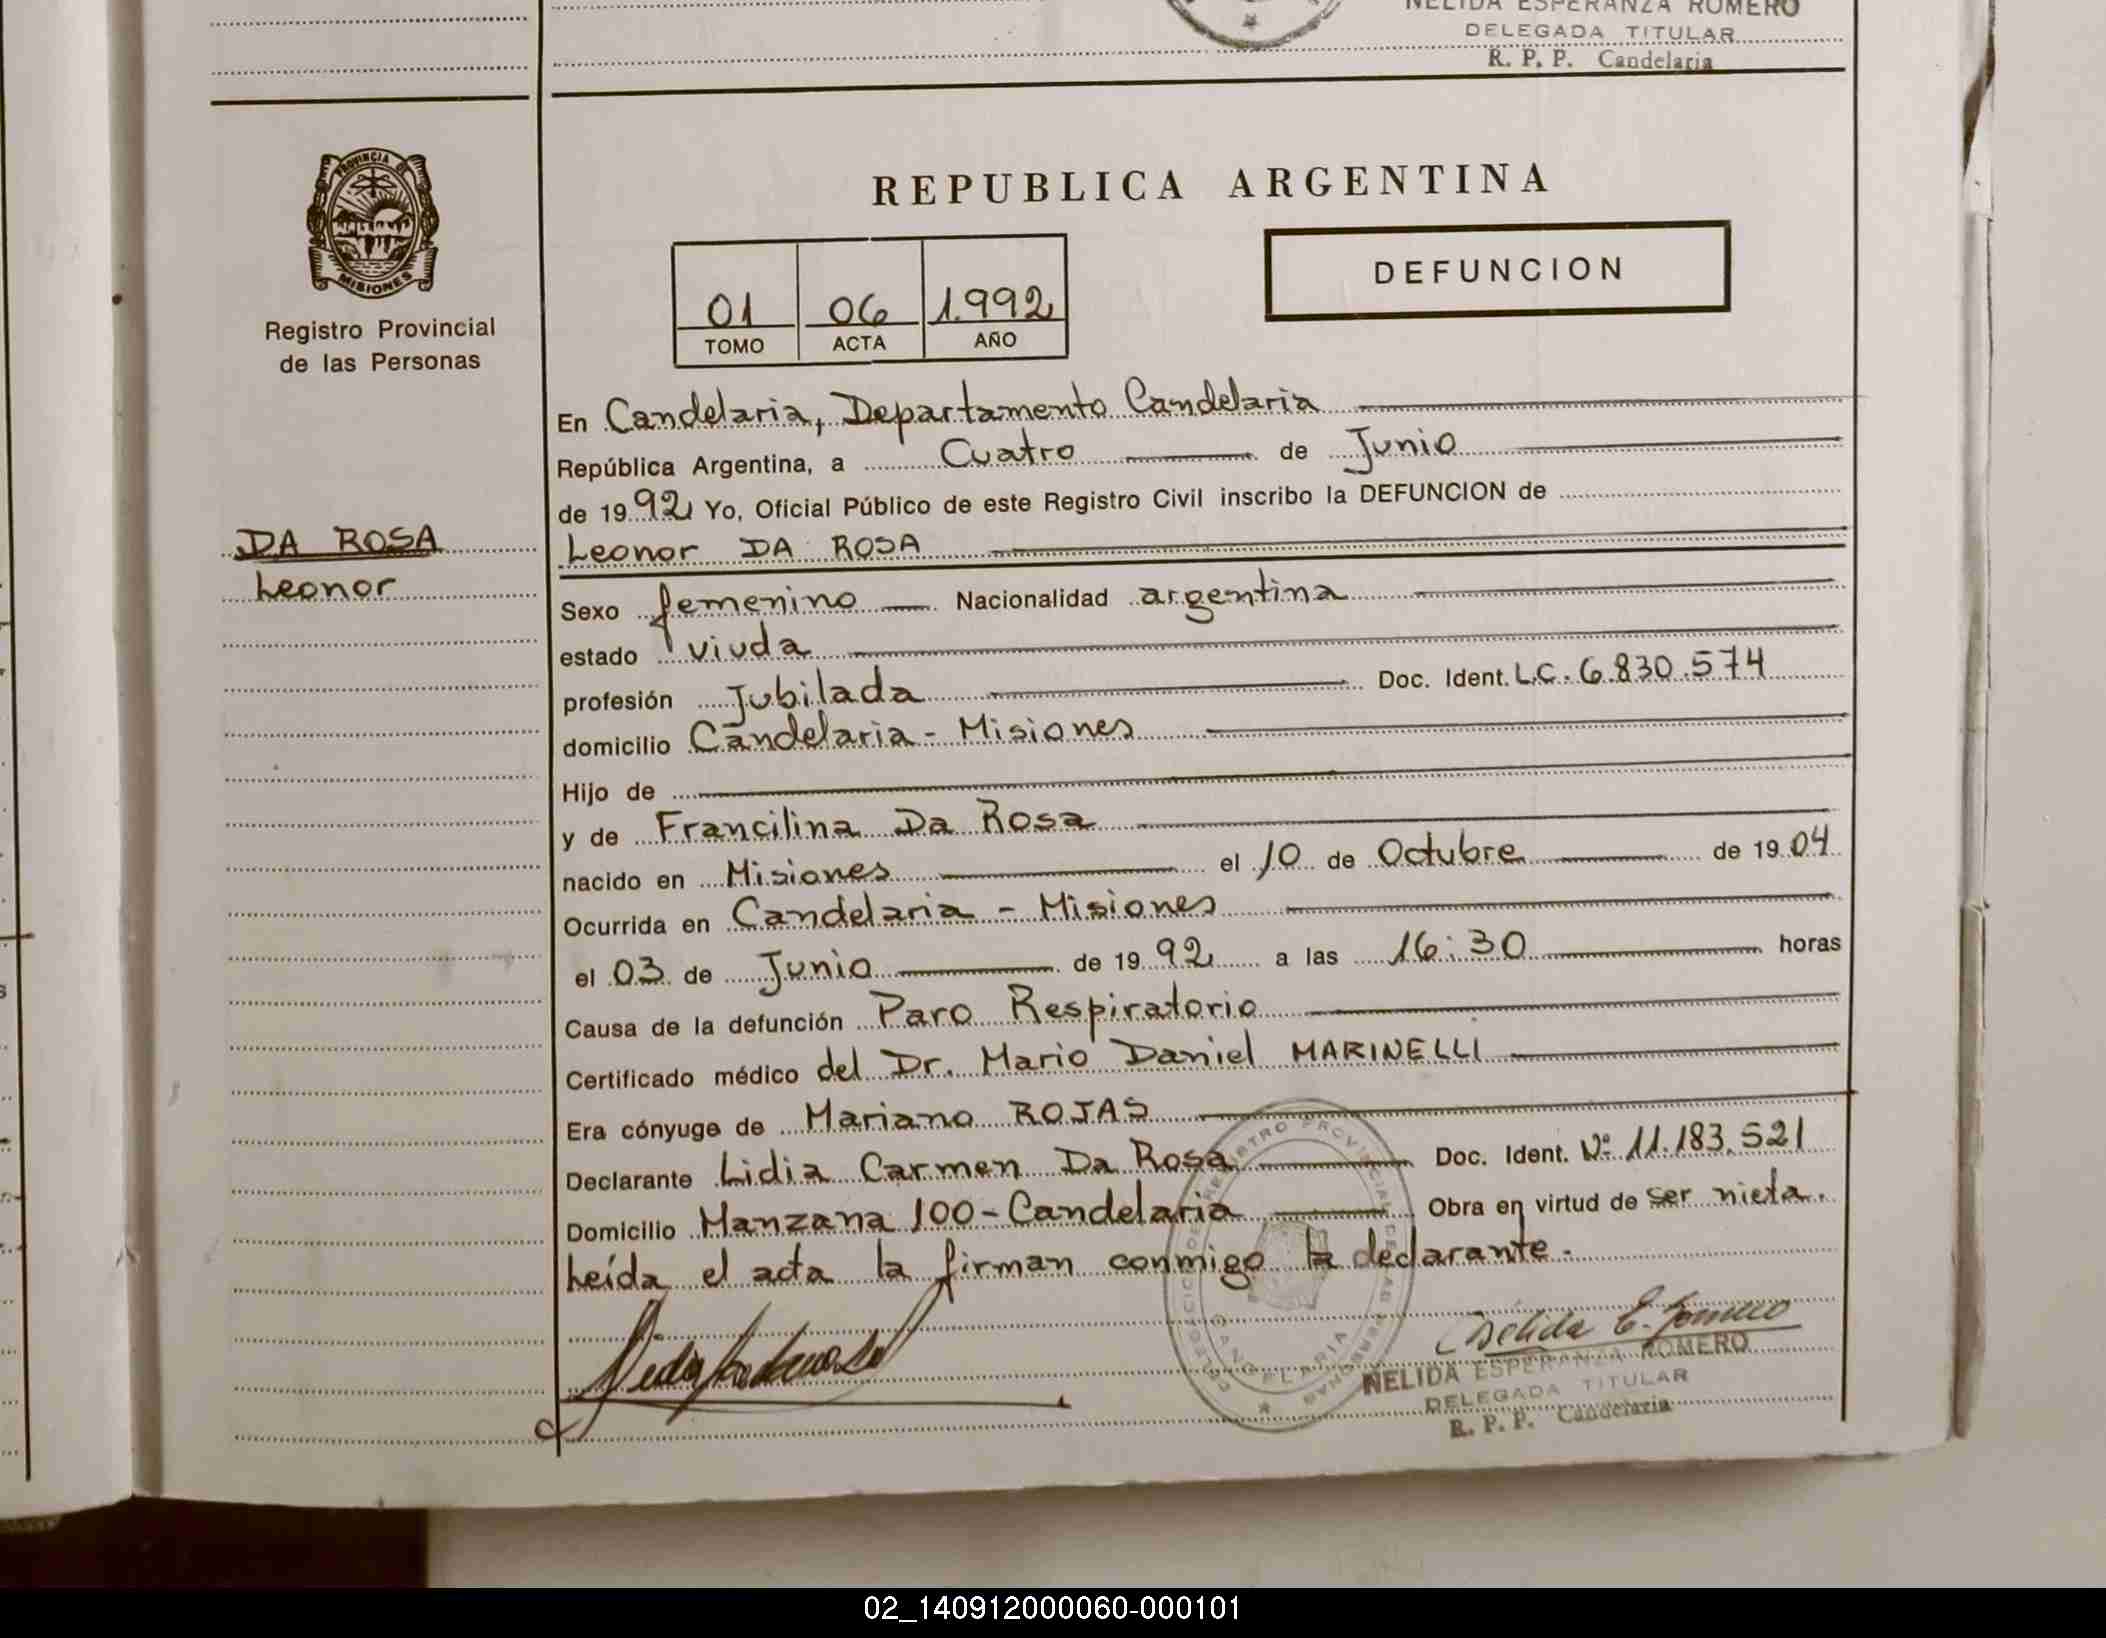 NELIDA ESPERANZA ROMERO
DELEGADA TITULAR
R. P. P. Candelaria
PROVINCIA DE
MISIONES
Registro Provincial
de las Personas
DA ROSA
Leonor
REPUBLICA ARGENTINA
DEFUNCION
01 06 1.992
TOMO ACTA AÑO
En Candelaria, Departamento Candelaria
República Argentina, a Cuatro de Junio
de 1992 Yo, Oficial Público de este Registro Civil inscribo la DEFUNCION de
Leonor DA ROSA
Sexo femenino Nacionalidad argentina
estado viuda
profesión Jubilada Doc. Ident. L.C. 6.830.574
domicilio Candelaria - Misiones
Hijo de
y de Francilina Da Rosa
nacido en Misiones el 10 de Octubre de 1904
Ocurrida en Candelaria - Misiones
el 03 de Junio de 1992 a las 16:30 horas
Causa de la defunción Paro Respiratorio
Certificado médico del Dr. Mario Daniel MARINELLI
Era cónyuge de Mariano ROJAS
Declarante Lidia Carmen Da Rosa Doc. Ident. Nº 11.183.521
Domicilio Manzana 100 - Candelaria Obra en virtud de ser nieta.
Leída el acta la firman conmigo la declarante.
REGISTRO PROVINCIAL DE LAS PERSONAS
CANDELARIA
Nélida E. Romero
NELIDA ESPERANZA ROMERO
DELEGADA TITULAR
R. P. P. Candelaria
02_140912000060-000101